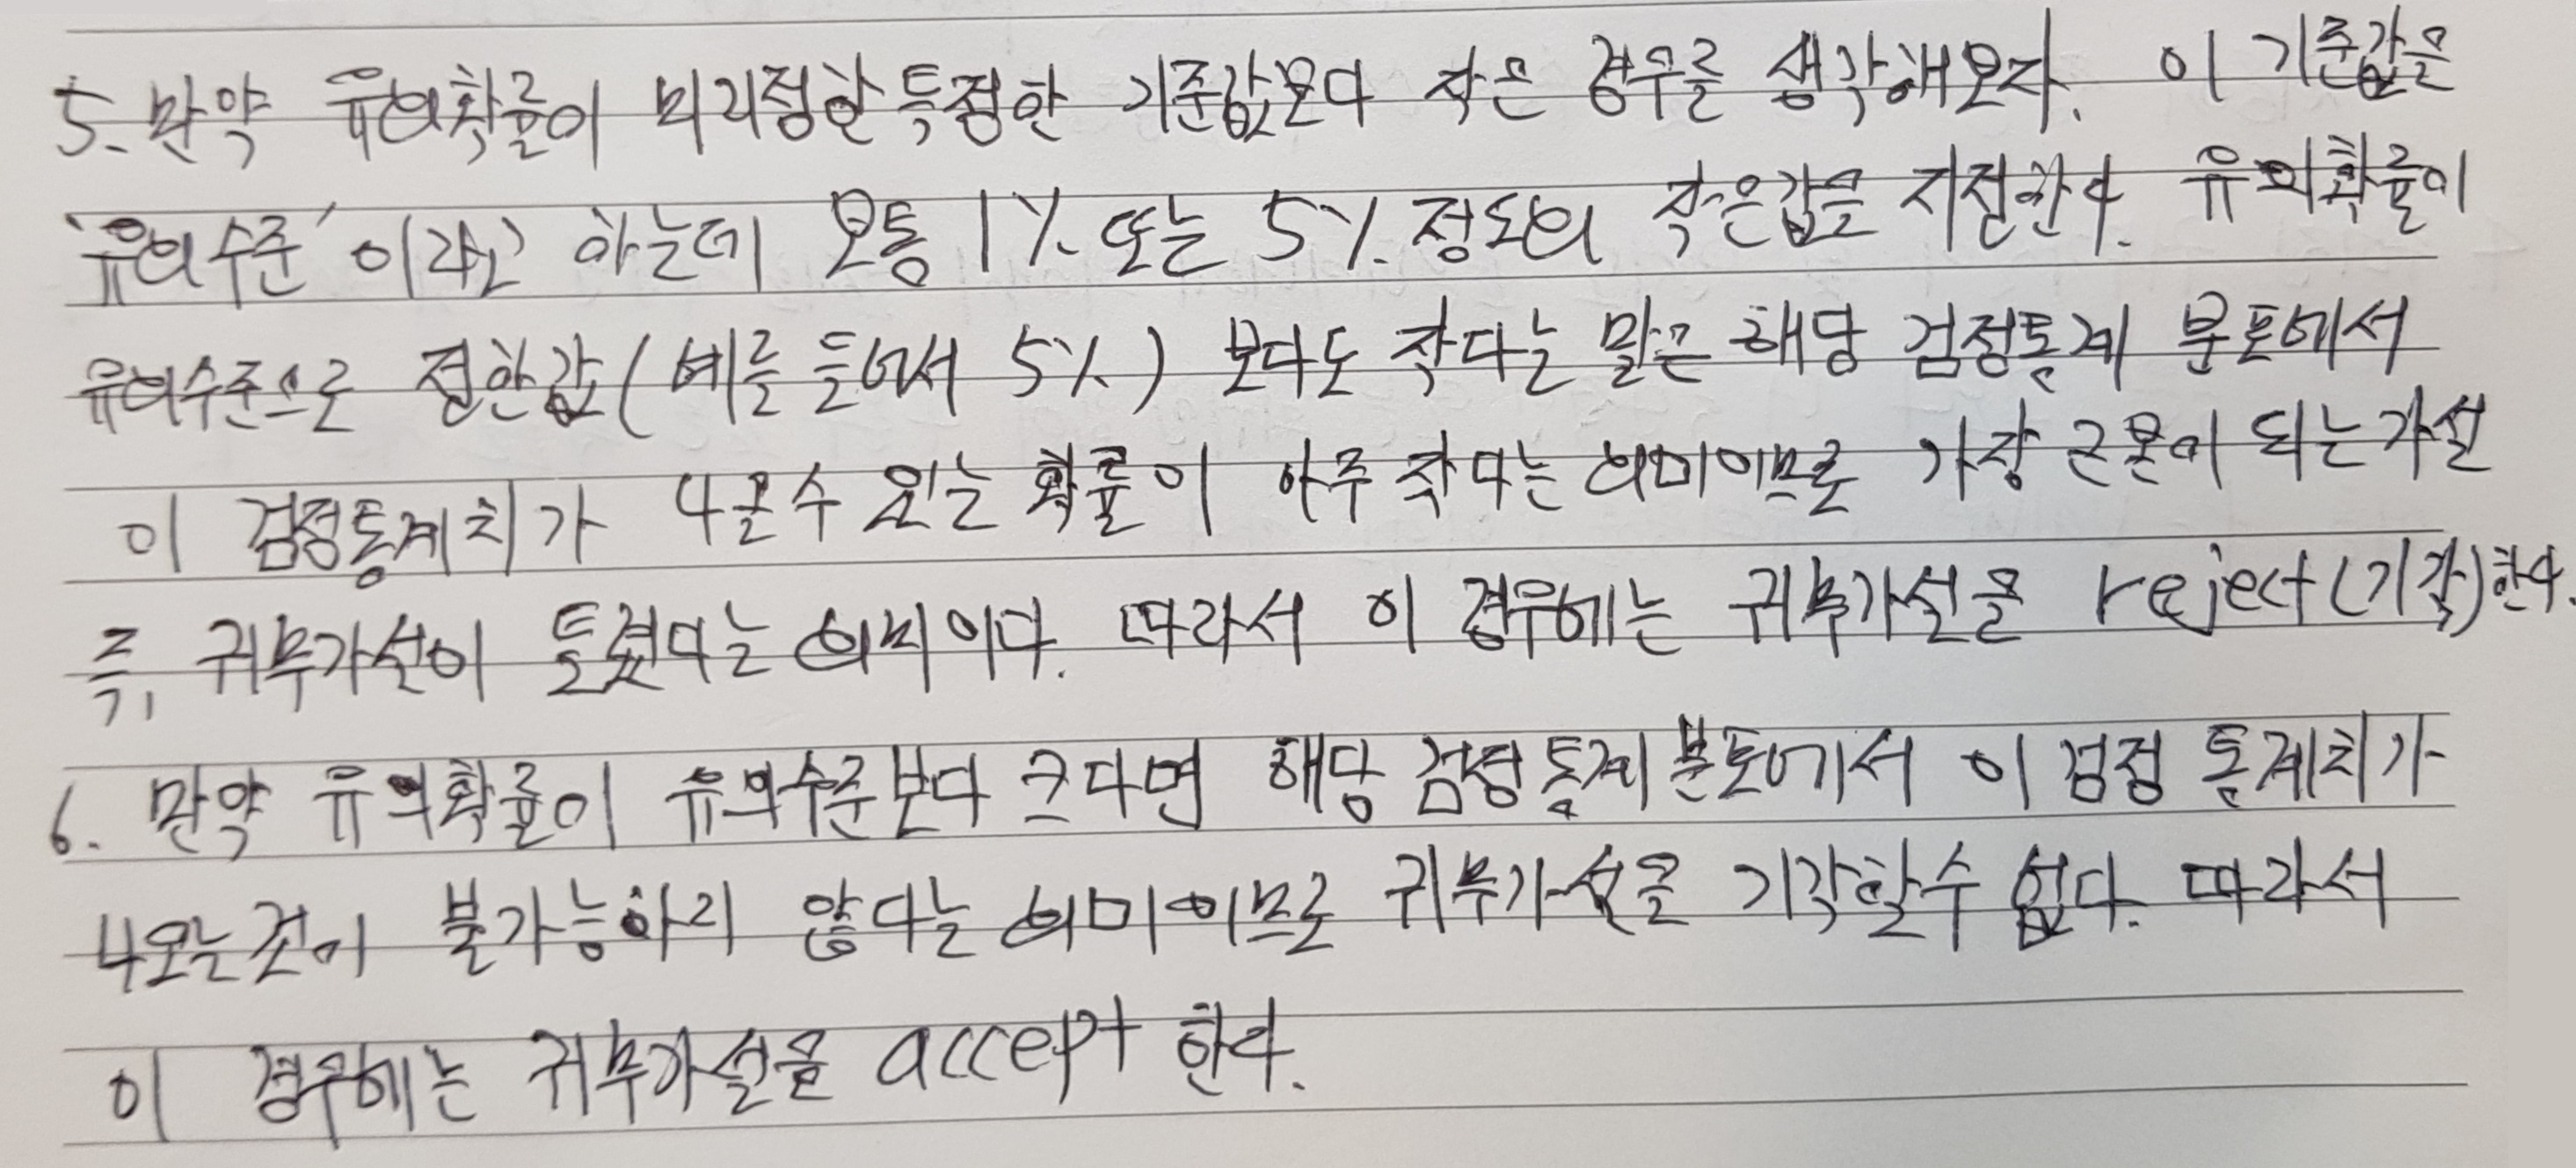 5. 만약 유의확률이 미리정한 특정한 기준값보다 작은 경우를 생각해보자. 이 기준값을
'유의수준' 이라고 하는데 보통 1% 또는 5% 정도의 작은값을 지정한다. 유의확률이
유의수준으로 정한값 (예를 들어서 5%) 보다도 작다는 말은 해당 검정통계 분포에서
이 검정통계치가 나올수 있는 확률이 아주 작다는 의미이므로 가장 근본이 되는 가설
즉, 귀무가설이 틀렸다는 의미이다. 따라서 이 경우에는 귀무가설을 reject (기각)한다.
6. 만약 유의확률이 유의수준보다 크다면 해당 검정통계분포에서 이 검정 통계치가
나오는것이 불가능하지 않다는 의미이므로 귀무가설을 기각할수 없다. 따라서
이 경우에는 귀무가설을 accept 한다.